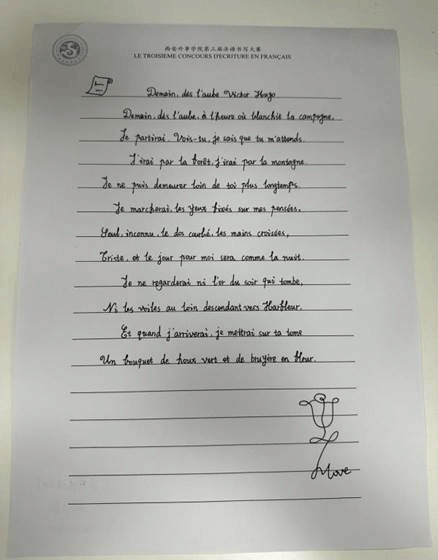 西安外事学院第三届法语书写大赛
LE TROISIEME CONCOURS D'ECRITURE EN FRANÇAIS
Demain, dès l'aube Victor Hugo
Demain, dès l'aube, à l'heure où blanchit la campagne,
Je partirai. Vois-tu, je sais que tu m'attends.
J'irai par la forêt, j'irai par la montagne.
Je ne puis demeurer loin de toi plus longtemps.
Je marcherai, les yeux fixés sur mes pensées,
Seul, inconnu, le dos courbé, les mains croisées,
Triste, et le jour pour moi sera comme la nuit.
Je ne regarderai ni l'or du soir qui tombe,
Ni les voiles au loin descendant vers Harfleur.
Et quand j'arriverai, je mettrai sur ta tome
Un bouquet de houx vert et de bruyère en fleur.
love